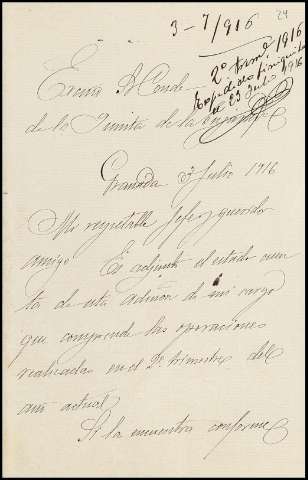 24
3-7/916
2º trimе 1916
Expedido finiquito
en 23 Julio 1916
Excmo Sr Conde
de la Quinta de la Enjarada
Granada 3 Julio 1916
Mi respetable Jefe y querido
amigo. Es adjunto el estado cuen
ta de esta admon de mi cargo
que comprende las operaciones
realizadas en el 2º trimestre del
año actual.
Si la encuentra conforme